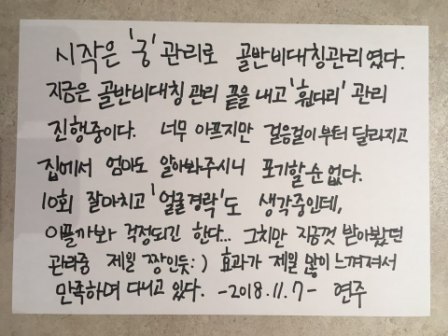 시작은 '궁' 관리로 골반비대칭관리였다.
지금은 골반비대칭 관리 끝을 내고 '휜다리' 관리
진행중이다. 너무 아프지만 걸음걸이부터 달라지고
집에서 엄마도 알아봐주시니 포기할순 없다.
10회 잘마치고 '얼굴경락'도 생각중인데,
아플까봐 걱정되긴 한다... 그치만 지금껏 받아봤던
관리중 제일 짱인듯:) 효과가 제일 많이 느껴져서
만족하며 다니고 있다. -2018.11.7- 연주